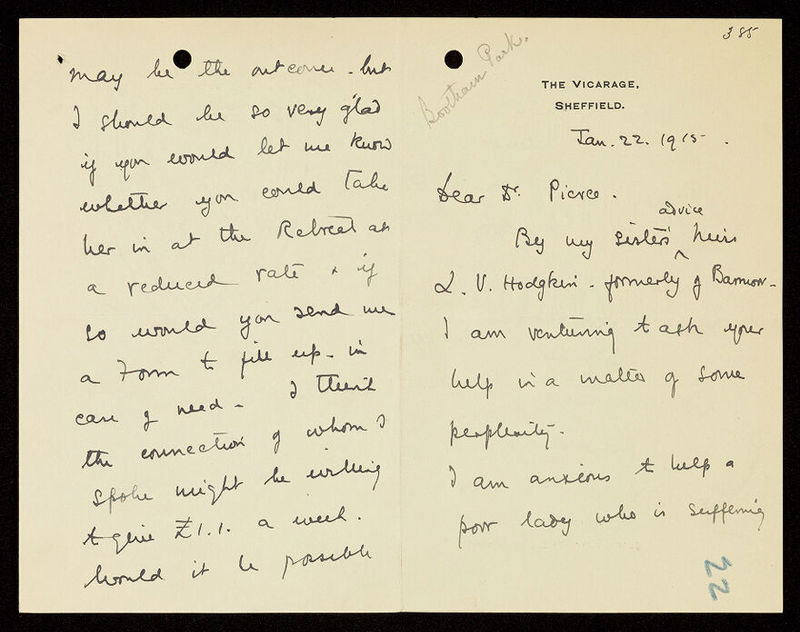 may be the outcome - but
I should be so very glad
if you would let me know
whether you could take
her in at the Retreat at
a reduced rate & if
so would you send me
a Form to fill up - in
case of need - I think
the connection of whom I
spoke might be willing
to give £1.1. a week.
Would it be possible
385
Bootham Park.
THE VICARAGE,
SHEFFIELD.
Jan. 22. 1915.
Dear Dr. Pierce.
advice
By my sister's Miss
L. V. Hodgkin - formerly of Barmoor -
I am venturing to ask your
help in a matter of some
perplexity -
I am anxious to help a
poor lady who is suffering
22